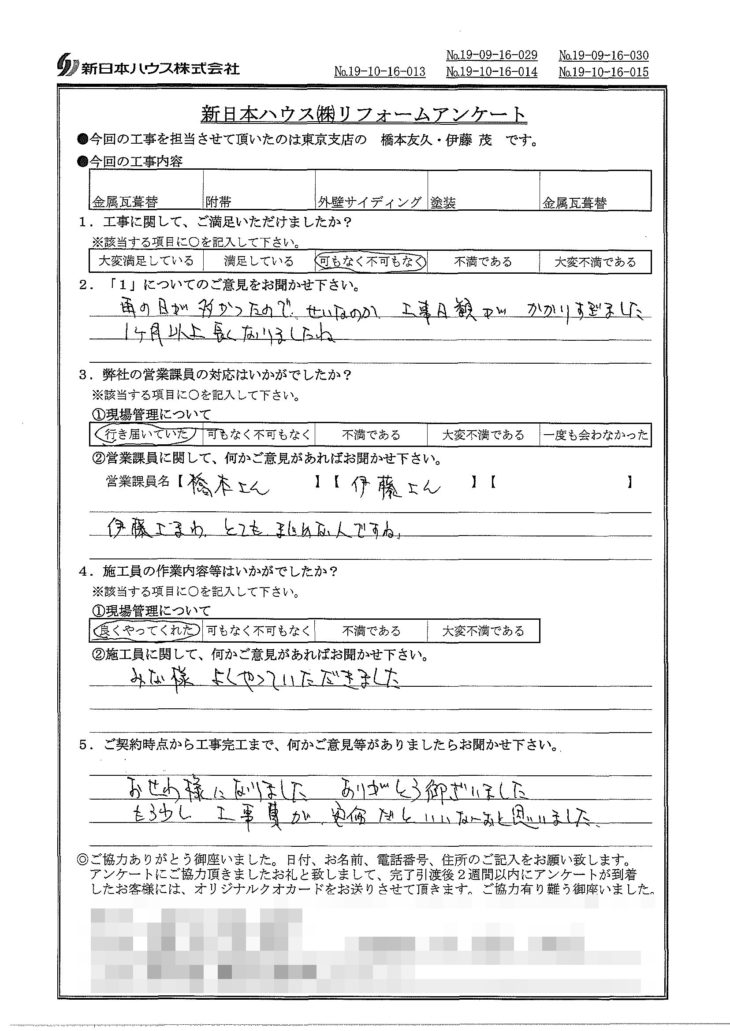 新日本ハウス株式会社
No.19-10-16-013 No.19-09-16-029 No.19-09-16-030
No.19-10-16-014 No.19-10-16-015
新日本ハウス㈱リフォームアンケート
●今回の工事を担当させて頂いたのは東京支店の 橋本友久・伊藤 茂 です。
●今回の工事内容
金属瓦葺替 附帯 外壁サイディング 塗装 金属瓦葺替
1．工事に関して、ご満足いただけましたか？
※該当する項目に○を記入して下さい。
大変満足している 満足している 可もなく不可もなく 不満である 大変不満である
2．「1」についてのご意見をお聞かせ下さい。
雨の日が多かったので、せいなのか、工事日数が かかりすぎました
1ヶ月以上長くなりましたね
3．弊社の営業課員の対応はいかがでしたか？
※該当する項目に○を記入して下さい。
①現場管理について
行き届いていた 可もなく不可もなく 不満である 大変不満である 一度も会わなかった
②営業課員に関して、何かご意見があればお聞かせ下さい。
営業課員名【橋本さん 】【 伊藤さん 】【 】
伊藤さまわ、とても まじめな人ですね。
4．施工員の作業内容等はいかがでしたか？
※該当する項目に○を記入して下さい。
①現場管理について
良くやってくれた 可もなく不可もなく 不満である 大変不満である
②施工員に関して、何かご意見があればお聞かせ下さい。
みな様 よくやっていただきました
5．ご契約時点から工事完工まで、何かご意見等がありましたらお聞かせ下さい。
おせわ様になりました ありがとう御ざいました
もう少し 工事費が、安価だと いいなーあと思いました。
◎ご協力ありがとう御座いました。日付、お名前、電話番号、住所のご記入をお願い致します。
アンケートにご協力頂きましたお礼と致しまして、完了引渡後２週間以内にアンケートが到着
したお客様には、オリジナルクオカードをお送りさせて頂きます。ご協力有り難う御座いました。